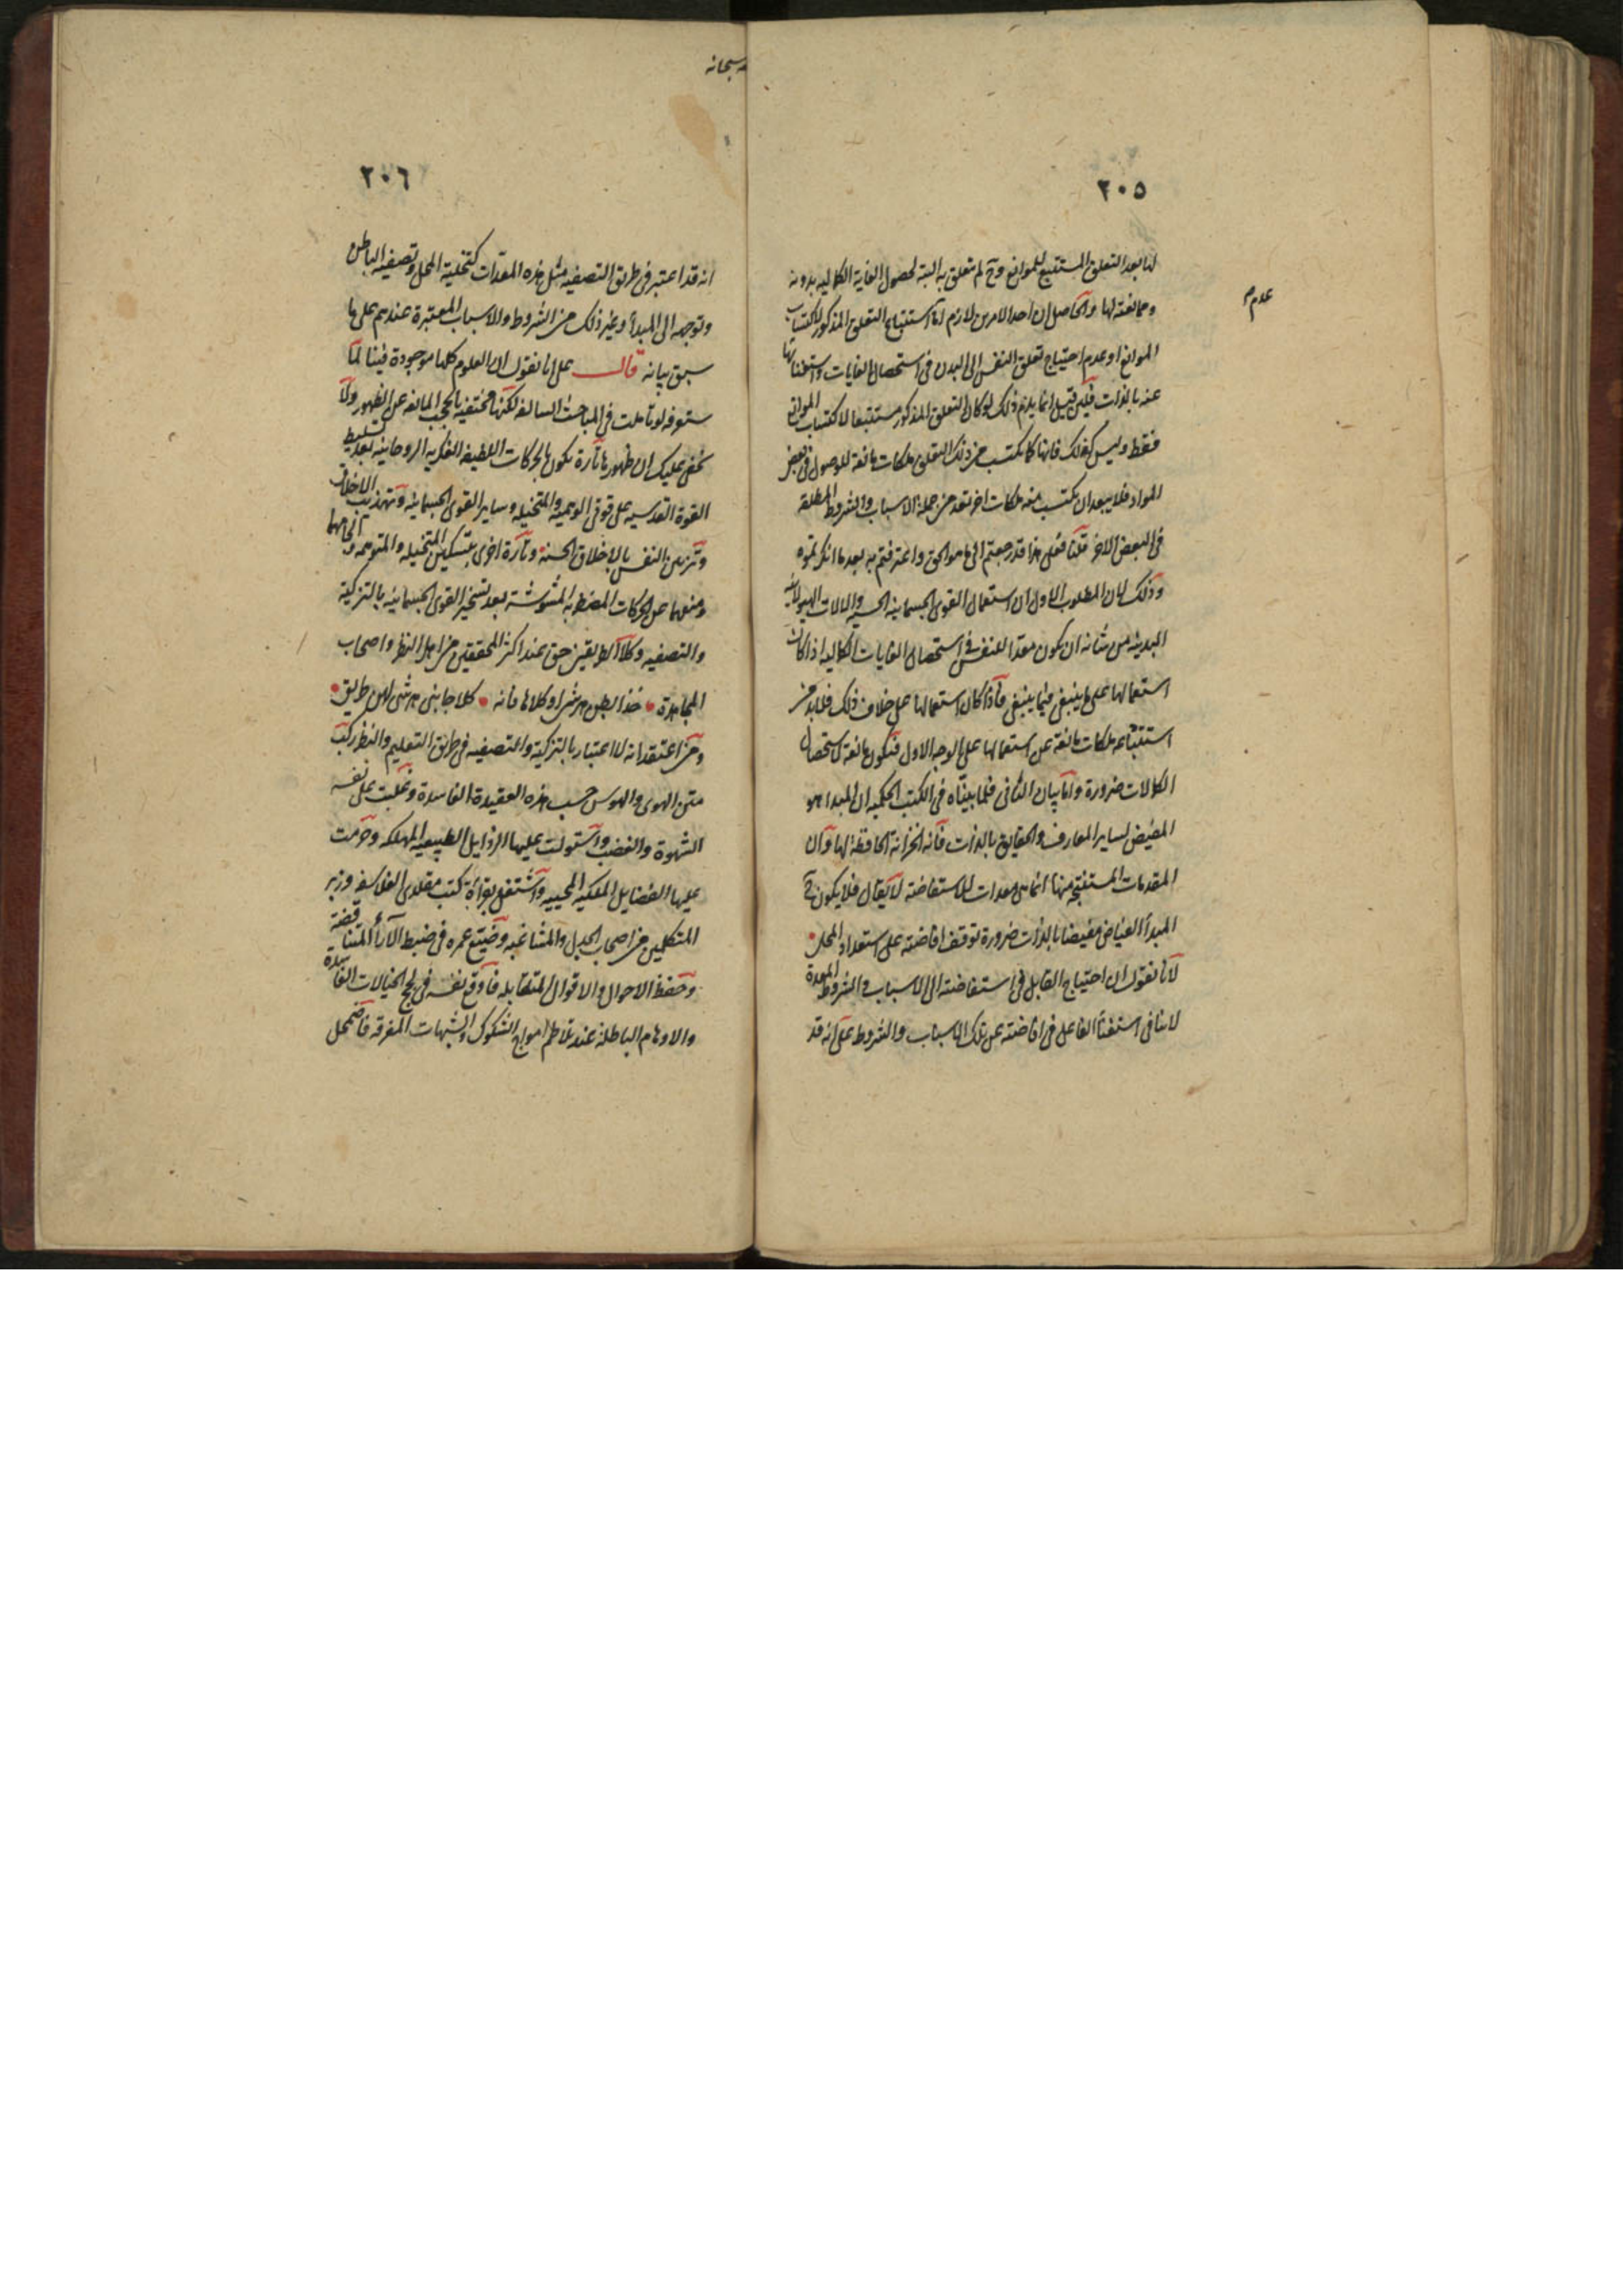 ٢٠٥
لها بعد التعلق المستتبع للموانع وح لم تتعلق به البتة لحصول الغاية الكماليه بدونه
وممانعته لها والحاصل ان احد الامرين لازم اما استتباع التعلق المذكور لاكتساب
عدم م
الموانع او عدم احتياج تعلق النفس الى البدن فى استحصال الغايات واستغنائها
عنه بالذات فلئن قيل انما يلزم ذلك لو كان التعلق المذكور مستتبعا لاكتساب الموانع
فقط وليس كذلك فانها كما تكتسب من ذلك التعلق ملكات مانعة للوصول فى بعض
المواد فلا يبعد ان تكتسب منه ملكات اخر تعد من جملة الاسباب والشروط المطلقة
فى البعض الاخر قلنا فعلى هذا قد رجعتم الى ما هو الحق واعترفتم به بعد ما انكرتموه
وذلك لان المطلوب الاول ان استعمال القوى الجسمانية الحسيه والالات الهيولانية
البدنية من شانه ان يكون معدا للنفس فى استحصال الغايات الكماليه اذا كان
استعمالها على ما ينبغى فيما ينبغى فاذا كان استعمالها على خلاف ذلك فلا بد من
استتباعه ملكات مانعة عن استعمالها على الوجه الاول فتكون مانعة لاستحصال
الكمالات ضرورة واما بيان الثانى فلما بيناه فى الكتب الحكميه ان المبدا هو
المفيض لساير المعارف والحقايق بالذات فانه الخزانة الحافظة لها وان
المقدمات المستنتجه منها انما هى معدات للاستفاضة لا يقال فلا يكون ح
المبدأ الفياض مفيضا بالذات ضرورة توقف افاضته على استعداد المحل
لانا نقول ان احتياج القابل فى استفاضته الى الاسباب والشروط المعدة
لا ينافى استغناء الفاعل فى افاضته عن تلك الاسباب والشروط على انه قد
سبحانه
٢٠٦
انه قد اعتبر فى طريق التصفيه مثل هذه المعدات كتخلية المحل وتصفيه الباطن
وتوجهه الى المبدأ وغير ذلك من الشروط والاسباب المعتبرة عندهم على ما
سبق بيانه قال على انا نقول ان العلوم كلها موجودة فينا لما
ستعرفه لو تأملت فى المباحث السالفة لكنها مختفيه بالحجب المانعه عن الظهور ولا
يخفى عليك ان ظهورها تارة يكون بالحركات اللطيفه الفكريه الروحانيه بعد تسليط
القوة القدسيه على قوتى الوهميه والمتخيله وساير القوى الجسمانيه وتهذيب الاخلاق
وتزيين النفس بالاخلاق الحسنه وتارة اخرى بتسكين المتخيله والمتوهمه والجامهما
ومنعهما عن الحركات المضطربه المشوشة بعد تسخير القوى الجسمانيه بالتزكية
والتصفيه وكلا الطريقين حق عند اكثر المحققين من اهل النظر واصحاب
المجاهدة خذا بطن هرشى او كلاها فانه كلا جانبى هرشى لهن طريق
ومن اعتقد انه لا اعتبار بالتزكية والتصفيه فى طريق التعليم والنظر ركب
متن الهوى والهوس حسب هذه العقيدة الفاسدة وغلبت على نفسه
الشهوة والغضب واستولت عليها الرذايل الطبيعيه المهلكه وحرمت
عليها الفضايل الملكيه المحييه واشتغل بقراءة كتب مقلدى الفلاسفه وزبر
المتكلمين من اصحاب الجدل والمشاغبه وضيع عمره فى ضبط الآراء المتناقضة
وحفظ الاحوال والاقوال المتقابله فاوقع نفسه فى لجج الخيالات الفاسدة
والاوهام الباطلة عند تلاطم امواج الشكوك والشبهات المغرقه فاضمحل